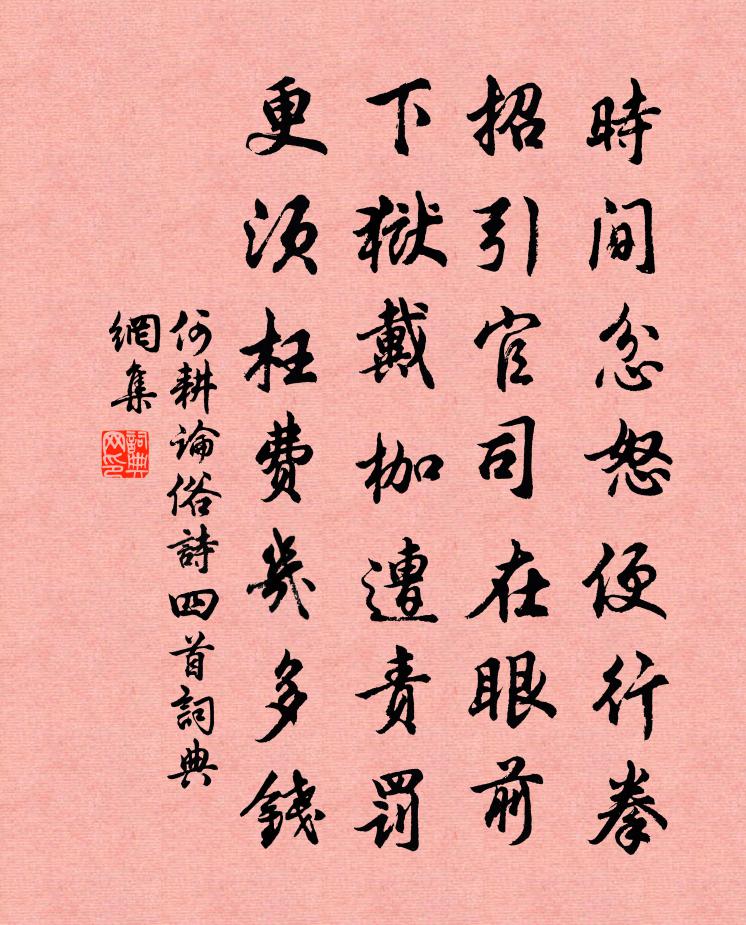 時間忿怒便行拳
招引官司在眼前
下獄戴枷遭責罰
更須枉費幾多錢
何耕論俗詩四首詞典
網集
詞典
网印